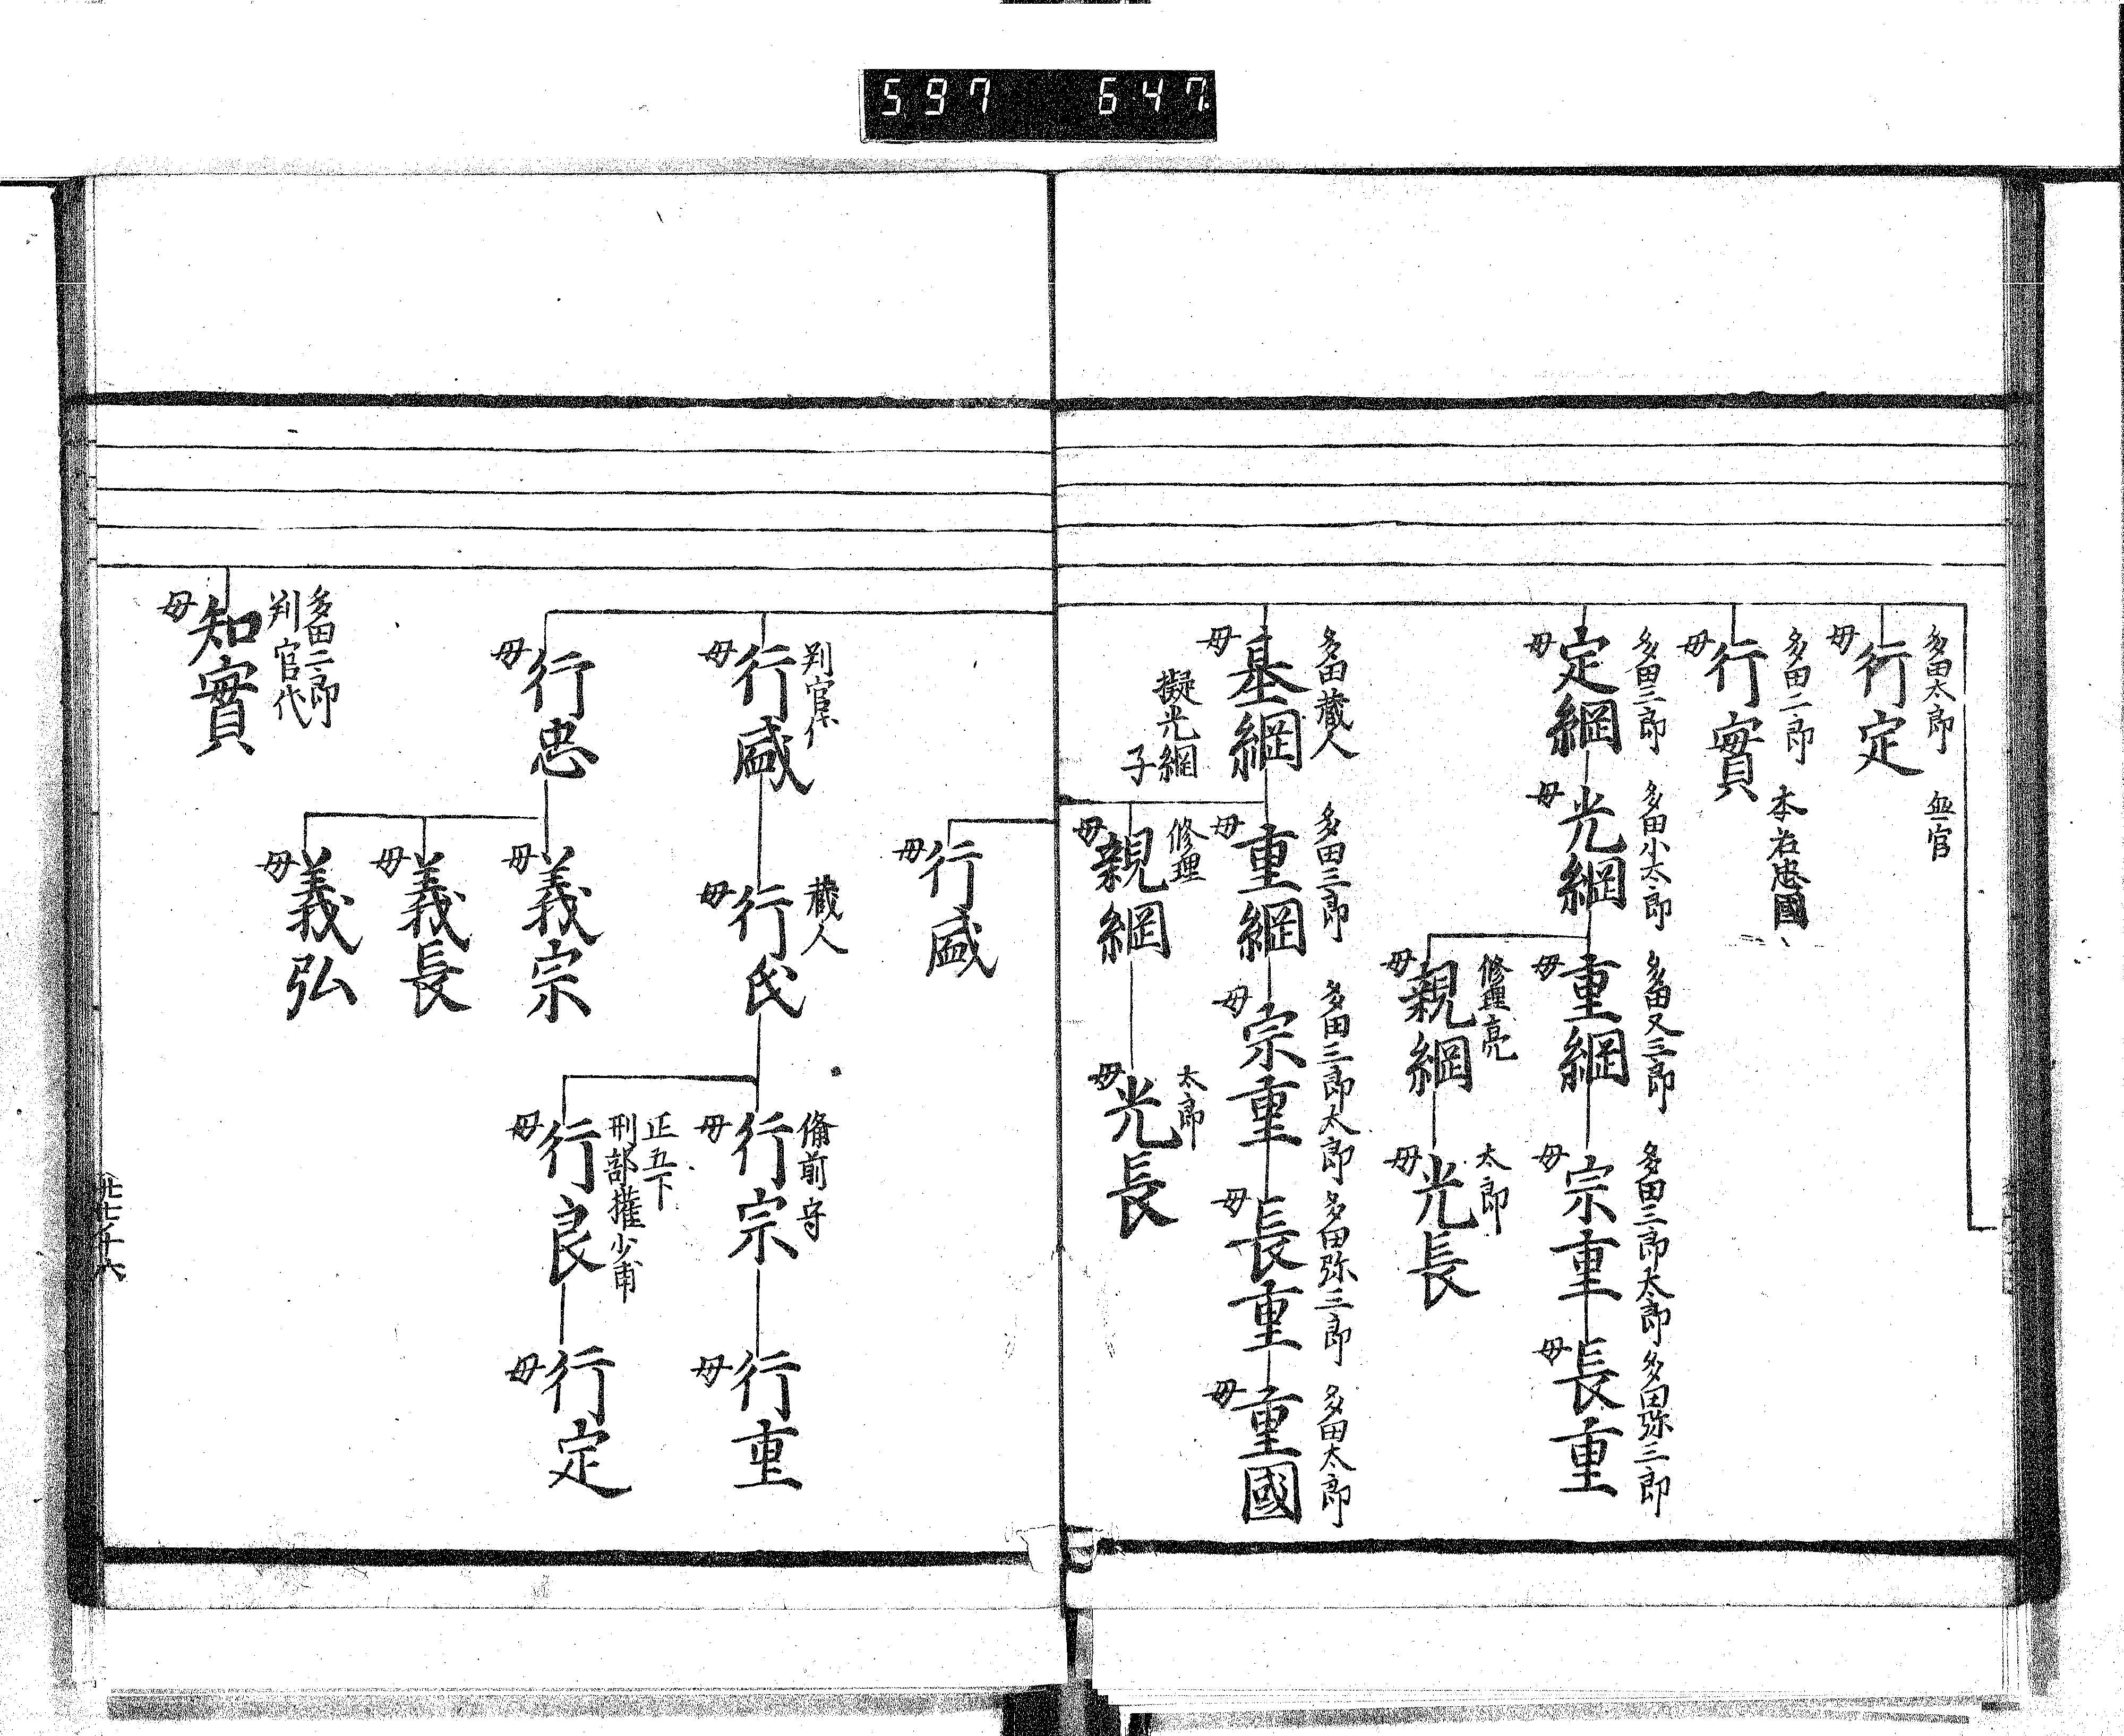 597 647.
多田太郎 無官
母 行定
多田二郎 本名忠國
母 行實
多田三郎
母 定綱
多田小太郎
母 光綱
多田又三郎
母 重綱
多田三郎太郎
母 宗重
多田弥三郎
母 長重
修理亮
母 親綱
太郎
母 光長
多田蔵人
母 基綱
擬光綱
子
多田三郎
母 重綱
多田三郎太郎
母 宗重
多田弥三郎
母 長重
多田太郎
母 重國
修理
母 親綱
太郎
母 光長
母 行盛
判官代
母 行盛
蔵人
母 行氏
備前守
母 行宗
母 行重
正五下
刑部権少甫
母 行良
母 行定
母 行忠
母 義宗
母 義長
母 義弘
多田二郎
判官代
母 知實